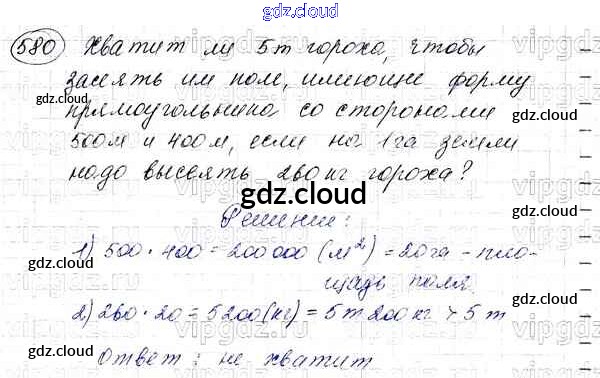 gdz.cloud
580 Хватит ли 5 т гороха, чтобы
засеять им поле, имеющее форму
gdz.cloud gdz.cloud
прямоугольника со сторонами
500 м и 400 м, если на 1 га земли
надо высеять 260 кг гороха?
gdz.cloud
Решение:
1) 500 · 400 = 200000 (м²) = 20 га - пло-
gdz.cloud gdz.cloud
щадь поля
2) 260 · 20 = 5200 (кг) = 5 т 200 кг > 5 т
gdz.cloud gdz.cloud
Ответ: не хватит
gdz.cloud